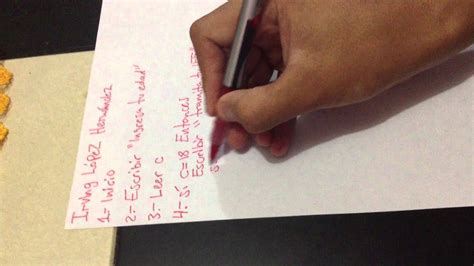 Irving López Hernandez
1.- Inicio
2.- Escribir "Ingresa tu edad"
3.- Leer c
4.- Sí c=18 Entonces
Escribir "tramita tu
s